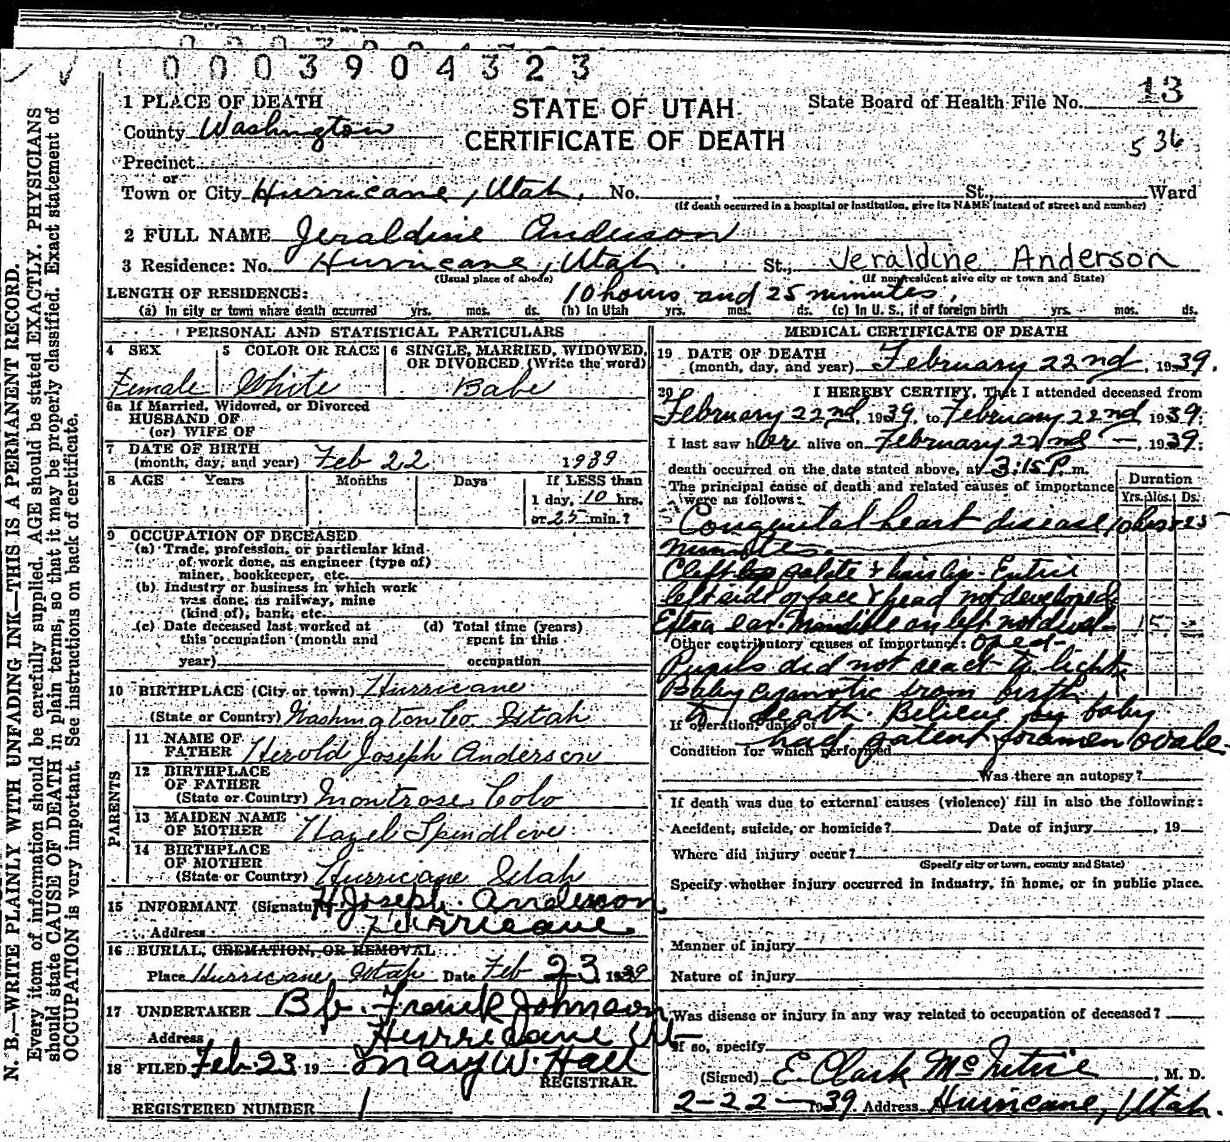 0003904323
13
1 PLACE OF DEATH
STATE OF UTAH
State Board of Health File No.
County Washington
CERTIFICATE OF DEATH
536
Precinct
or
Town or City Hurricane, Utah, No. , St., Ward
(If death occurred in a hospital or institution, give its NAME instead of street and number)
2 FULL NAME Jeraldine Anderson
3 Residence: No. Hurricane, Utah. St., Jeraldine Anderson
(Usual place of abode) (If nonresident give city or town and State)
LENGTH OF RESIDENCE: 10 hours and 25 minutes,
(a) In city or town where death occurred yrs. mos. ds. (b) In Utah yrs. mos. ds. (c) In U. S., if of foreign birth yrs. mos. ds.
PERSONAL AND STATISTICAL PARTICULARS
4 SEX 5 COLOR OR RACE 6 SINGLE, MARRIED, WIDOWED, OR DIVORCED (Write the word)
Female White Babe
6a If Married, Widowed, or Divorced
HUSBAND OF
(or) WIFE OF
7 DATE OF BIRTH
(month, day, and year) Feb 22 1939
8 AGE Years Months Days If LESS than
1 day, 10 hrs.
or 25 min.?
9 OCCUPATION OF DECEASED
(a) Trade, profession, or particular kind
of work done, as engineer (type of)
miner, bookkeeper, etc.
(b) Industry or business in which work
was done, as railway, mine
(kind of), bank, etc.
(c) Date deceased last worked at (d) Total time (years)
this occupation (month and spent in this
year) occupation
10 BIRTHPLACE (City or town) Hurricane
(State or Country) Washington Co. Utah
PARENTS
11 NAME OF
FATHER Herold Joseph Anderson
12 BIRTHPLACE
OF FATHER
(State or Country) Montrose Colo
13 MAIDEN NAME
OF MOTHER Hazel Spindlove
14 BIRTHPLACE
OF MOTHER
(State or Country) Hurricane Utah
15 INFORMANT (Signature) H Joseph Anderson
Address Hurricane
16 BURIAL, CREMATION, OR REMOVAL
Place Hurricane, Utah Date Feb 23 1939
17 UNDERTAKER Frank Johnson
Address Hurricane Ut
18 FILED Feb-23 19 Mary W. Hall
REGISTRAR.
REGISTERED NUMBER 1
MEDICAL CERTIFICATE OF DEATH
19 DATE OF DEATH
(month, day, and year) February 22nd, 1939.
20 I HEREBY CERTIFY, That I attended deceased from
February 22nd, 1939, to February 22nd 1939.
I last saw her alive on February 22nd —, 1939.
death occurred on the date stated above, at 3:15 P. m.
The principal cause of death and related causes of importance
were as follows:
Duration
Yrs. Mos. Ds.
Congenital heart disease 10 hrs + 25
minutes.
Cleft palate + harelip. Entire
left side of face & head not developed
Extra ear. Mandible on left not devel-
Other contributory causes of importance: oped-
Pupils did not react to light
Baby cyanotic from birth
to death. Believe by baby
If operation, date of
had patent foramen ovale.
Condition for which performed
Was there an autopsy?
If death was due to external causes (violence) fill in also the following:
Accident, suicide, or homicide? Date of injury , 19
Where did injury occur?
(Specify city or town, county and State)
Specify whether injury occurred in industry, in home, or in public place.
Manner of injury
Nature of injury
Was disease or injury in any way related to occupation of deceased?
If so, specify
(Signed) E. Clark McIntire, M. D.
2-22-1939 Address Hurricane, Utah.
N. B.—WRITE PLAINLY WITH UNFADING INK—THIS IS A PERMANENT RECORD.
Every item of information should be carefully supplied. AGE should be stated EXACTLY. PHYSICIANS
should state CAUSE OF DEATH in plain terms, so that it may be properly classified. Exact statement of
OCCUPATION is very important. See instructions on back of certificate.